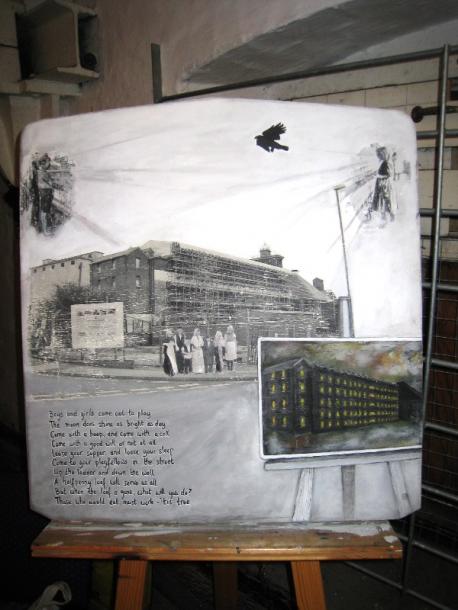 Boys and girls come out to play
The moon does shine as bright as day
Come with a hoop, and come with a call
Come with a good will or not at all
Leave your supper and leave your sleep
Come to your playfellows in the street
Up the ladder and down the wall
A halfpenny loaf will serve us all
But when the loaf is gone, what will you do?
Those who would eat must work - 'tis true